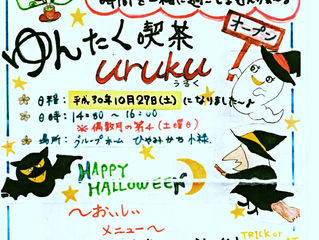 ゆんたく喫茶
オープン
uruku
うるく
日程: 平成30年10月27日(土)になりました～♪
日時: 14:00 ～ 16:00
※偶数月の第4(土曜日)
場所: グループホーム ひやみかち小禄
HAPPY
HALLOWEEN
～おいしい
メニュー～
TRICK or